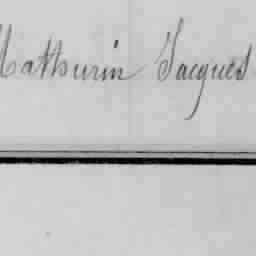 Mathurin Jacques